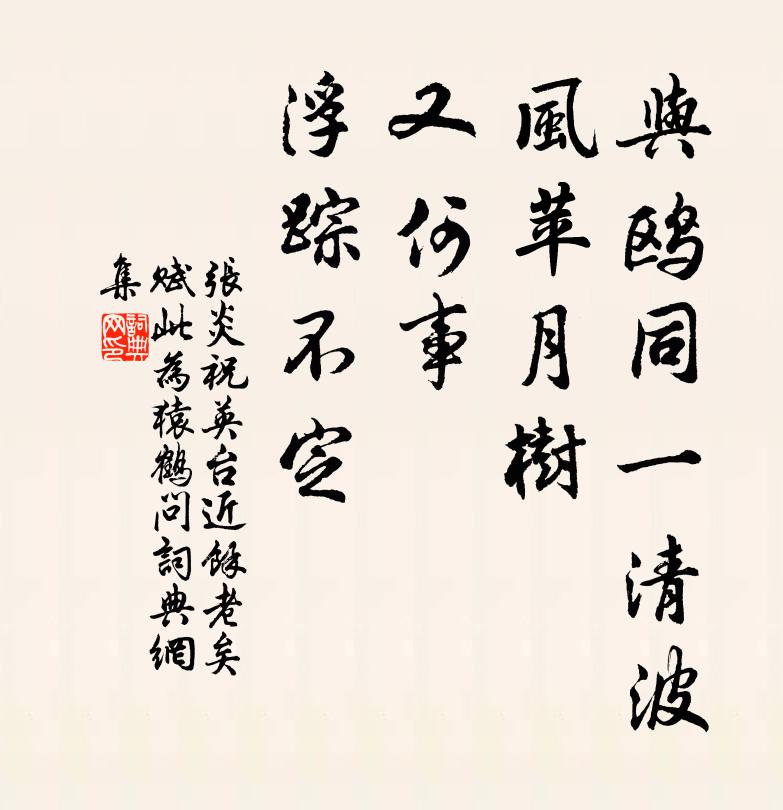 與鷗同一清波
風苹月樹
又何事
浮踪不定
張炎祝英台近餘老矣
賦此為猿鶴問詞典網
集
詞典
网印